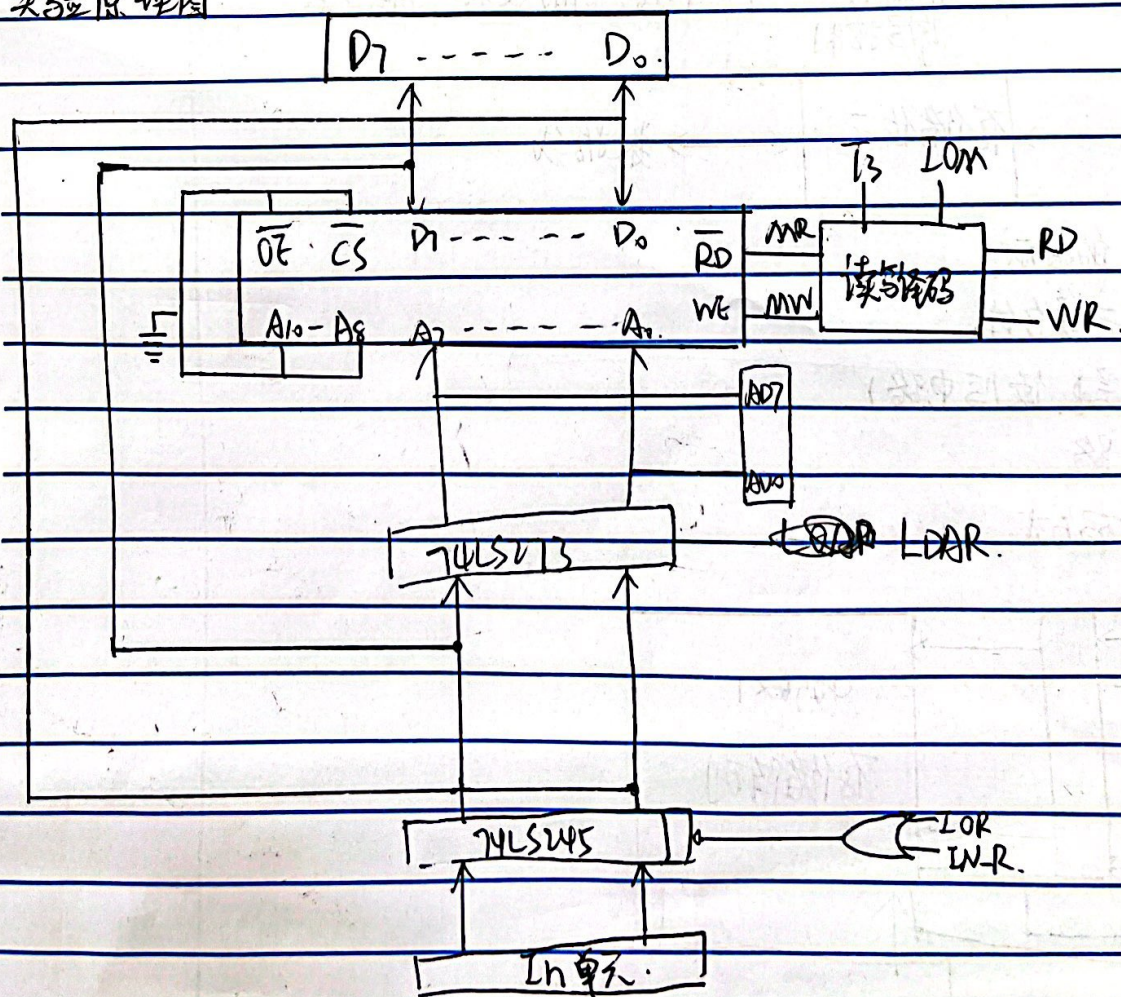 实验原理图
D7 ----- D0.
T3 IOM
OE CS D7 ------ D0 RD MR 读写译码 RD
A10-A8 A7 ------ A0. WE MW WR
AD7
AD0
74LS273 LDAR.
74LS245 IOR
IN-R.
In单元.